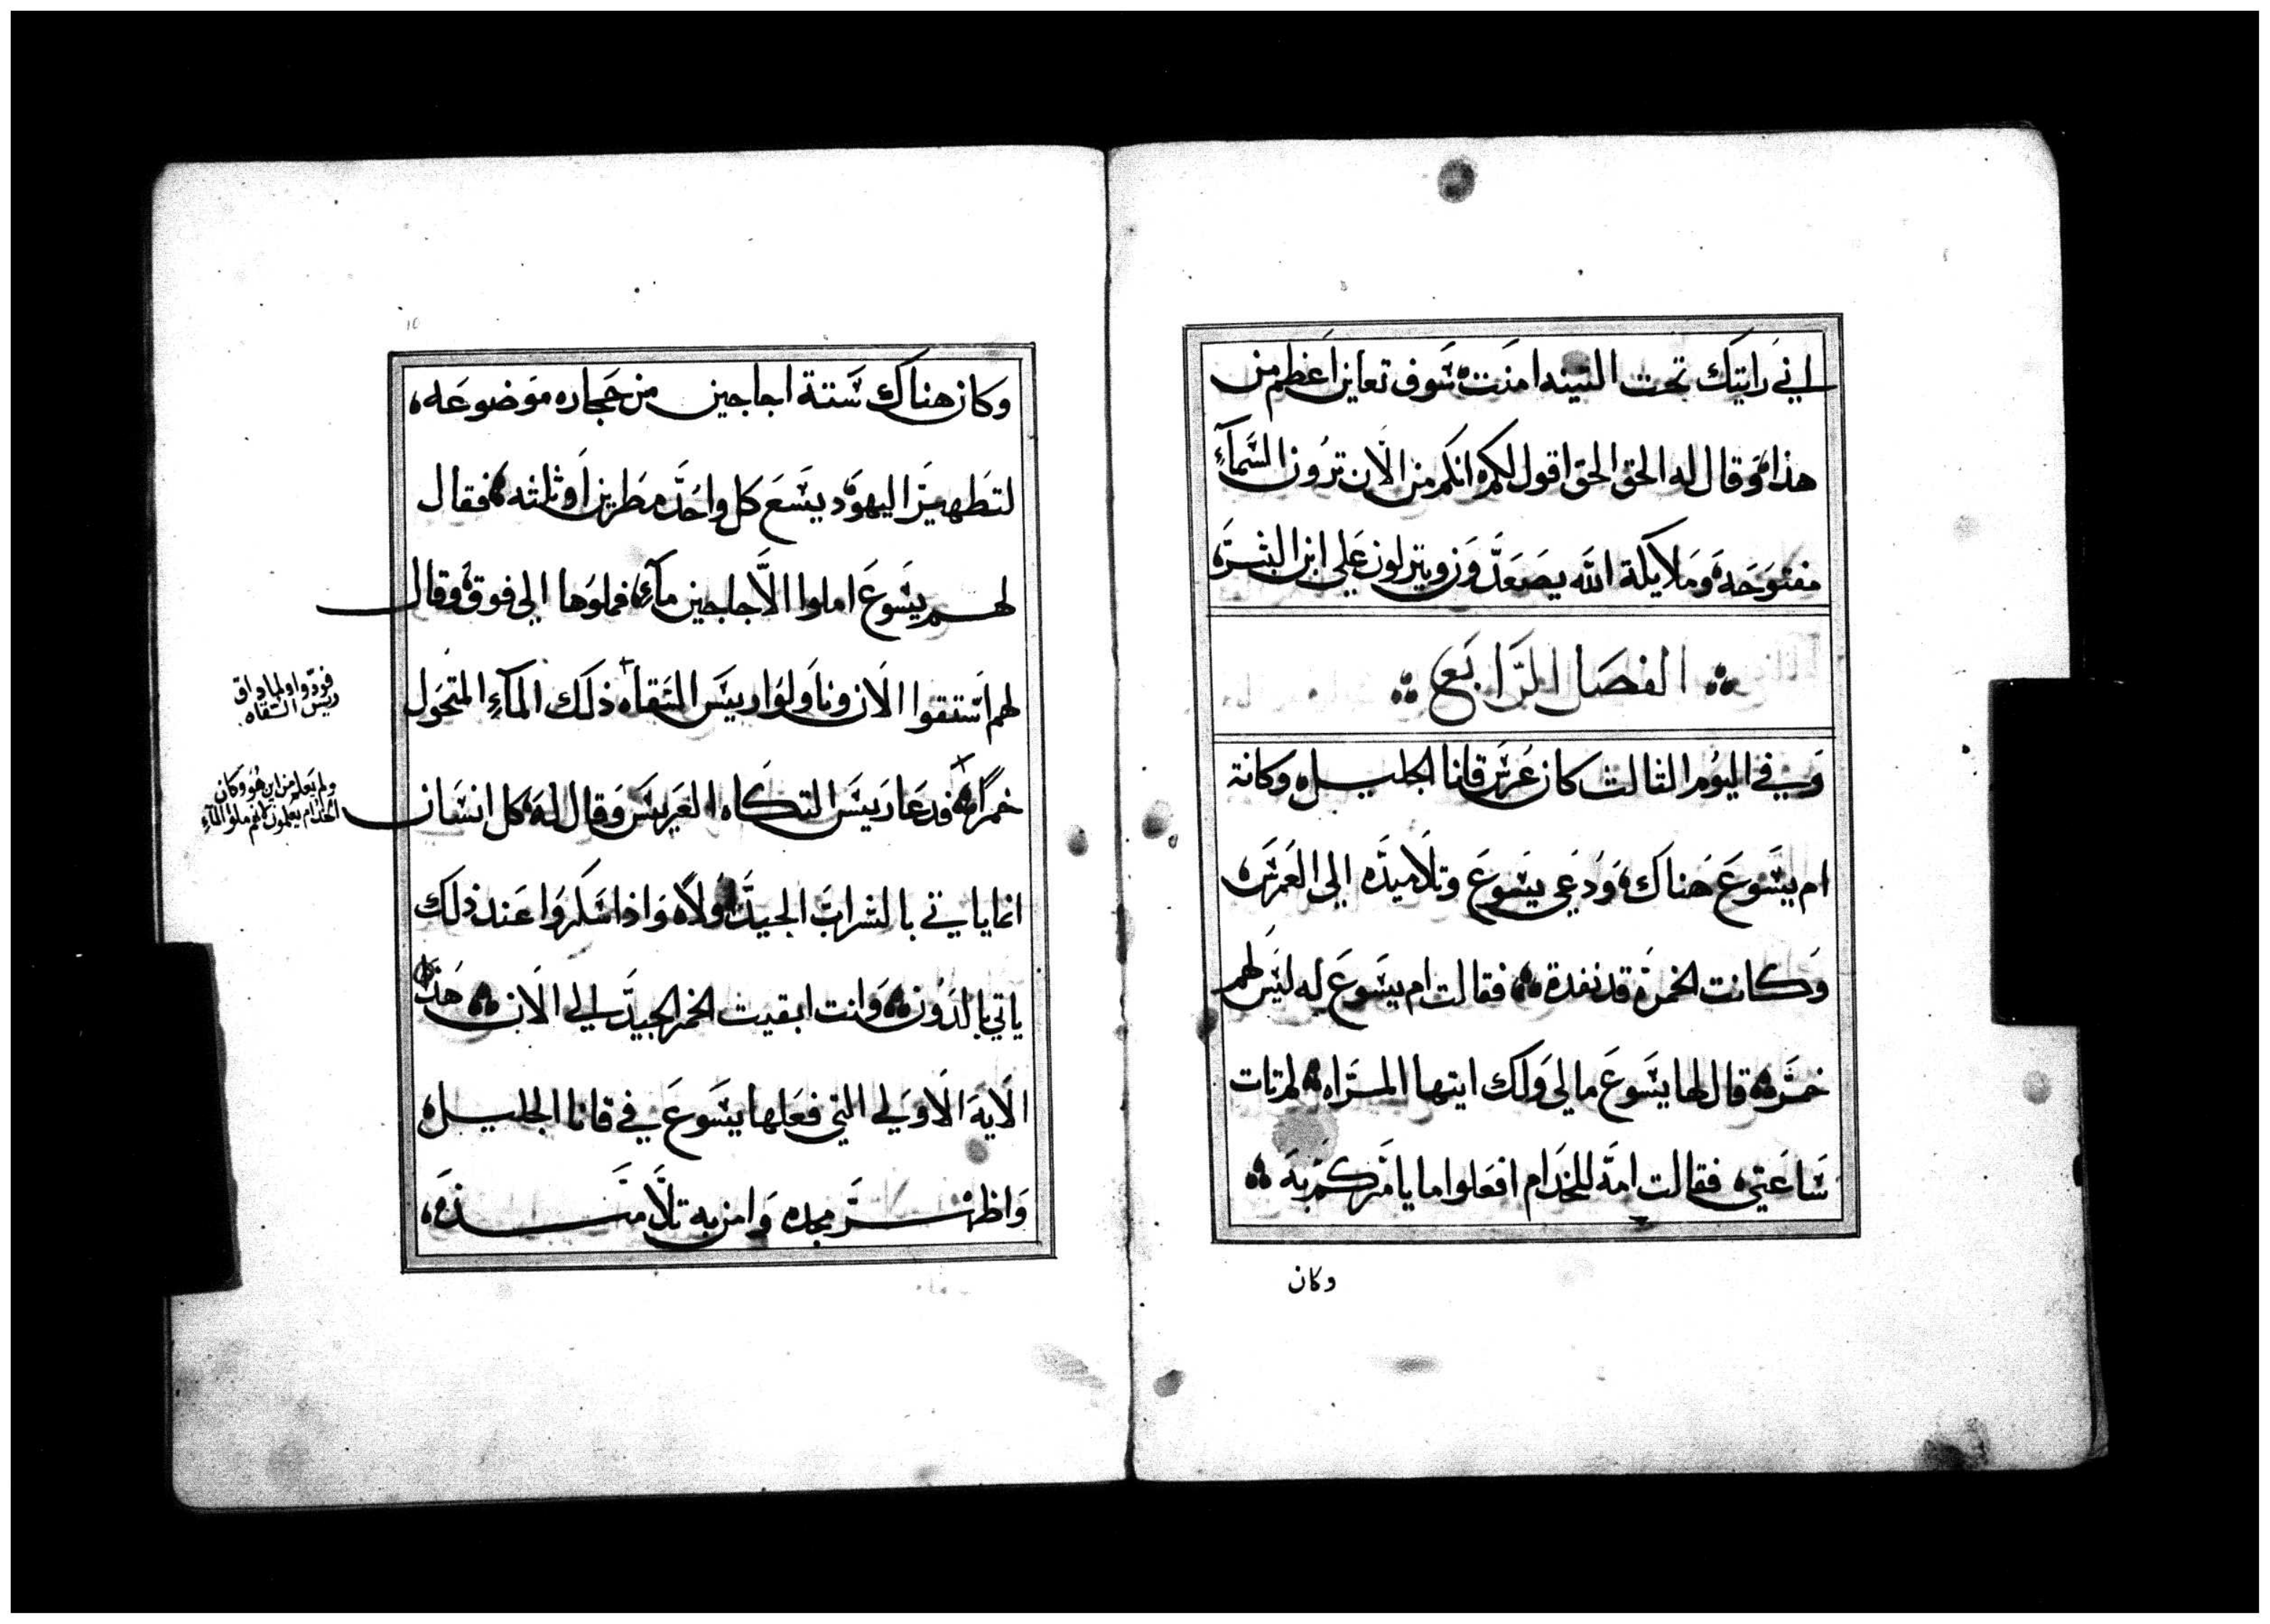 اني رايتك تحت التينه امنت سوف تعاين اعظم من
هذا وقال له الحق الحق اقول لكم انكم من الان ترون السمآء
مفتوحه وملايكة الله يصعدون وينزلون علي ابن البشر
الفصل الرابع
وفي اليوم الثالث كان عرس قانا الجليل وكانة
ام يسوع هناك ودعي يسوع وتلاميده الي العرس
وكانت الخمرة قد نفدة فقالت ام يسوع له ليس لهم
خمر قال لها يسوع مالي ولك ايتها المراه لم تات
ساعتي فقالت امه للخدام افعلوا ما يامركم به
وكان
وكان هناك ستة اجاجين من حجاره موضوعه
لتطهير اليهود يسع كل واحده مطرين او ثلثه فقال
لهم يسوع املوا الاجاجين مآء فملوها الي فوق وقال
لهم استقوا الان وناولوا رييس السقاه ذلك المآء المتحول
خمرا فدعا رييس التكاه العريس وقال له كل انسان
انما ياتي بالشراب الجيد اولا واذا سكروا عند ذلك
ياتي بالدون وانت ابقيت الخمر الجيد الي الان هذه
الاية الاولي التي فعلها يسوع في قانا الجليل
واظهر مجده وامن به تلاميذه
فودوا ولما داق
رييس السقاه
ولم يعلم من اين هو وكان
الخدام يعلمون لانهم ملوا المآء